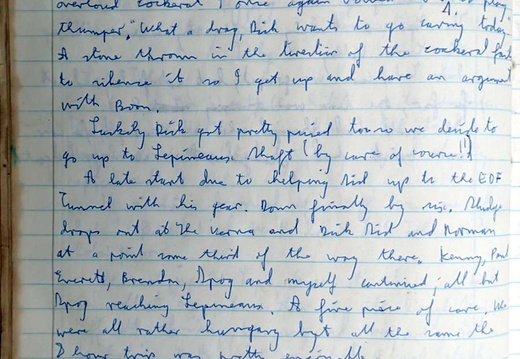 overloud cockerel I once again
thumper". What a drag, Dick wants to go caving today.
A stone thrown in the direction of the cockerel fails
to silence it so I get up and have an argument
with Boon.
Luckily Dick got pretty pissed too so we decide to
go up to Lepineaux Shaft (by cave of course!!)
A late start due to helping Sid up to the EDF
Tunnel with his gear. Down finally by six. Sludge
drops out at the Verna and Dick Sid and Norman
at a point some third of the way there. Kenny, Paul
Everett, Brendan, Dpog and myself continued; all but
Dpog reaching Lepineaux. A fine piece of cave. We
were all rather hungary but all the same the
hour trip was pretty enjoyable